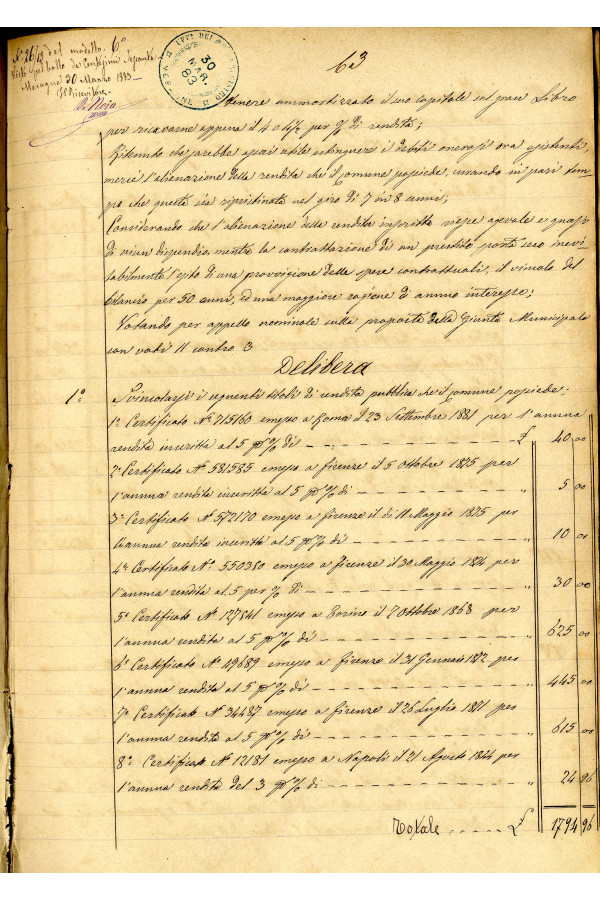 N° 26/13 del modello 6°
Visto per bollo da Centesimi Sessanta
Mesagne 30 Marzo 1883
Il Ricevitore
30
MAR
83
63
tenere ammortizzato il suo capitale sul gran Libro
per ricavarne appena il 4 o 4½ per % di rendita;
Ritenuto che sarebbe assai utile estinguere i debiti onerosi ora esistenti,
mercè l'alienazione della rendita che il Comune possiede, curando in pari tem=
po che questa sia ripristinata nel giro di 7 in 8 anni;
Considerando che l'alienazione delle rendita inscritta age e quasi
di niun dispendio, mentre la contrattazione di un prestito porta seco inevi
tabilmente l'esito di una provvigione delle spese contrattuali, il vincolo del
bilancio per 50 anni, ed una maggiore ragione di annuo interesse;
Votando per appello nominale sulla proposta della Giunta Municipale
con voti 11 contro 3
Delibera
1° Svincolarsi i seguenti titoli di rendita pubblica che il Comune possiede:
1° Certificato N° 715160 emesso a Roma il 23 Settembre 1881 per l'annua
rendita inscritta al 5 p% di £ 40 00
2° Certificato N° 581585 emesso a Firenze il 5 Ottobre 1875 per
l'annua rendita inscritta al 5 p% di " 5 00
3° Certificato N° 572170 emesso a Firenze il dì 11 Maggio 1875 per
l'annua rendita inscritta al 5 p% di " 10 00
4° Certificato N° 550380 emesso a Firenze il 30 Maggio 1874 per
l'annua rendita al 5 per % di " 30 00
5° Certificato N° 127541 emesso a Torino il 7 Ottobre 1863 per
l'annua rendita al 5 p% di " 625 00
6° Certificato N° 49689 emesso a Firenze il 31 Gennaio 1872 per
l'annua rendita al 5 p% di " 445 00
7° Certificato N° 34487 emesso a Firenze il 26 Luglio 1871 per
l'annua rendita al 5 p% di " 615 00
8° Certificato N° 12181 emesso a Napoli il 21 Agosto 1864 per
l'annua rendita del 3 p% di " 24 96
Totale £ 1794 96